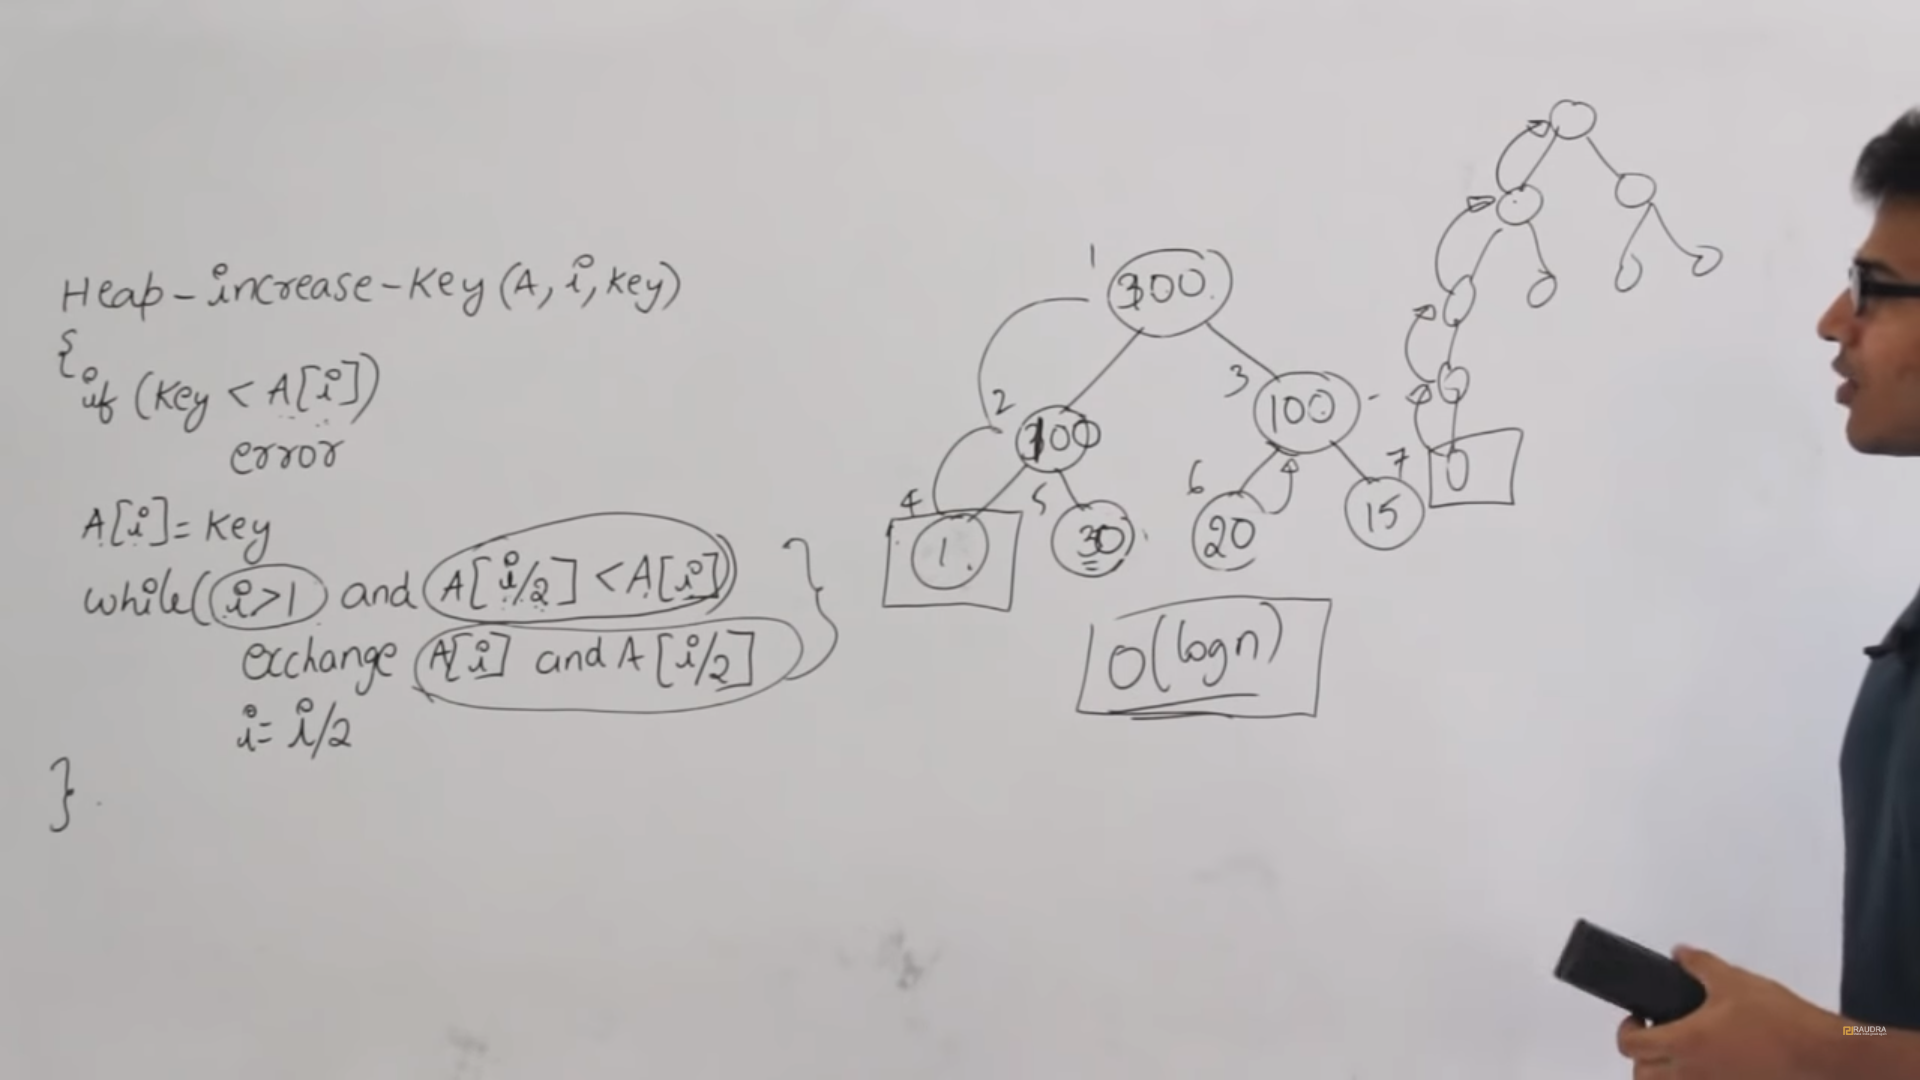 Heap-increase-Key (A, i, key)
{
if (key < A[i])
error
A[i] = key
while(i>1 and A[i/2] < A[i])
exchange A[i] and A[i/2]
i = i/2
}
1
300
2
3
100
4
1
5
30
6
20
7
15
O(logn)
RAUDRA